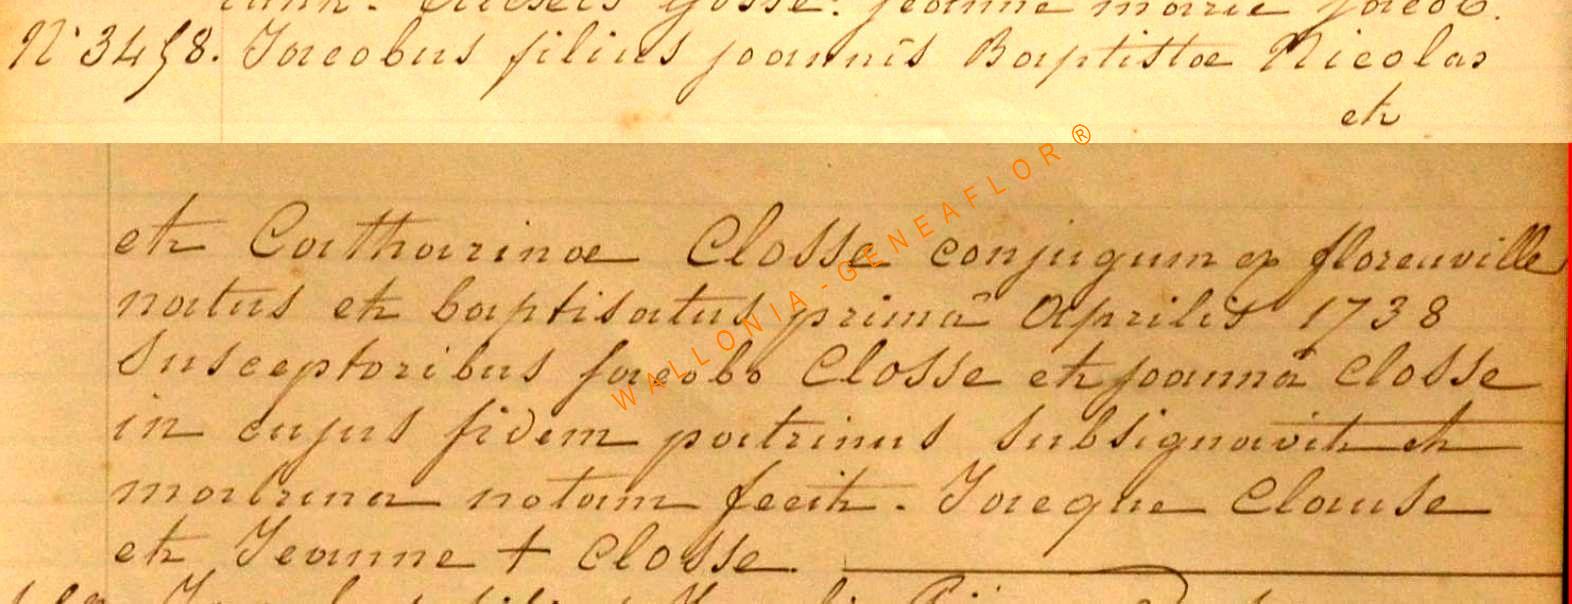 Closse. Jeanne marie Jacob.
N° 3458. Jacobus filius joannis Baptistæ Nicolas
et
et Catharinæ Closse conjugum ex florenville
natus et baptisatus primâ Aprilis 1738
Susceptoribus jacobo Closse et joannâ Closse
in cujus fidem patrinus subsignavit et
matrina notam fecit. Jacque Clause
et Jeanne + Closse.
WALLONIA-GENEAFLOR ®